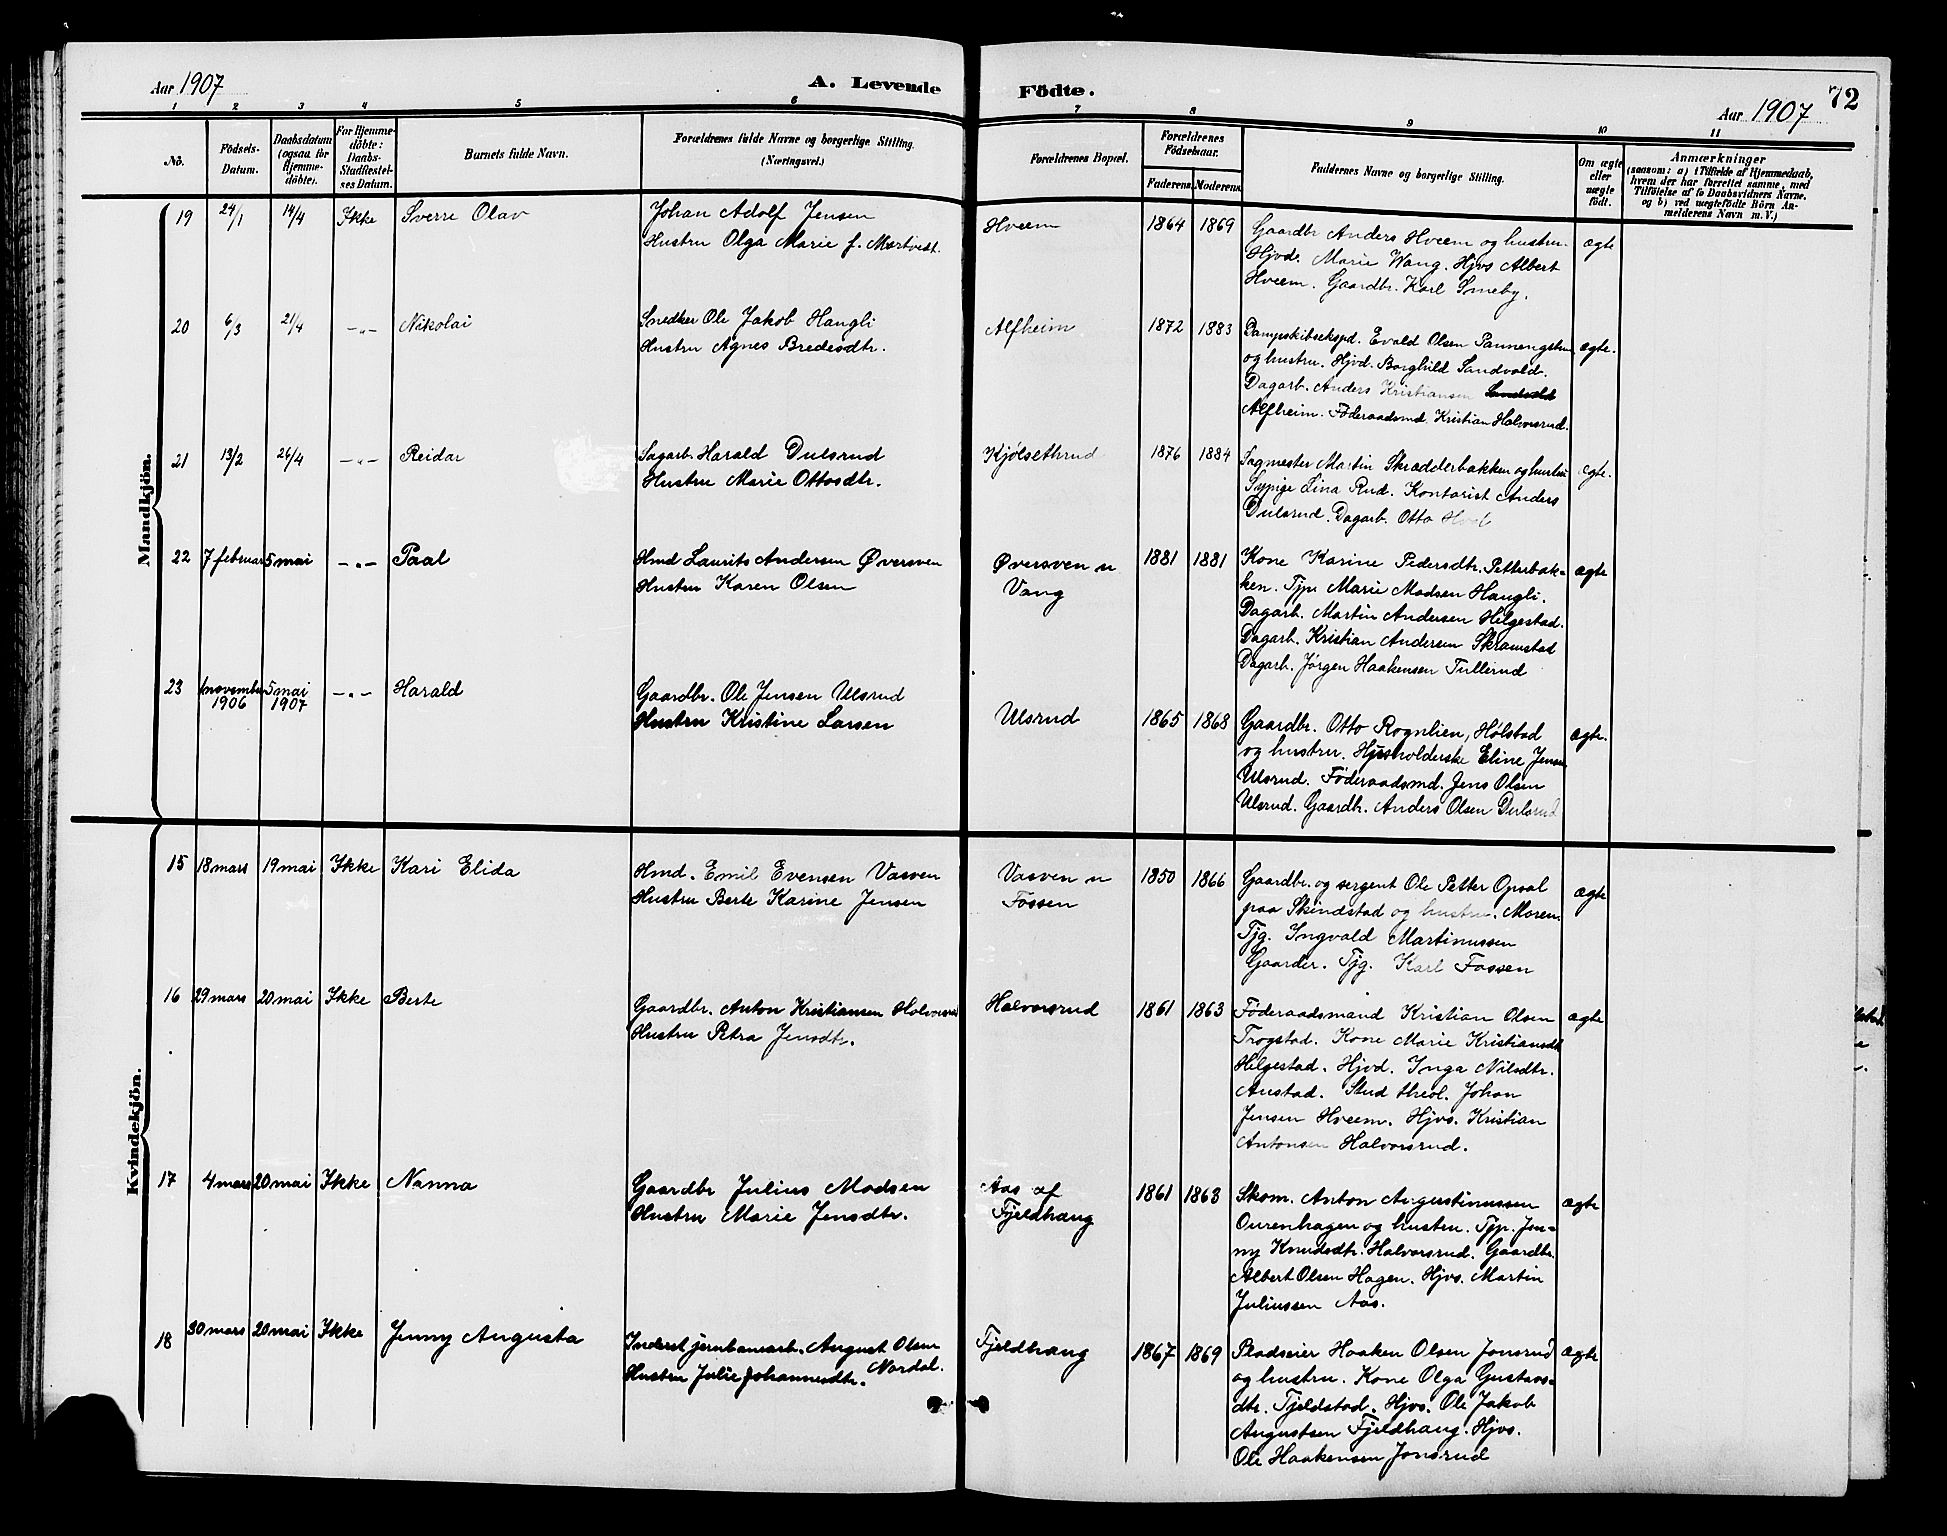 Aar 1907
A. Levende
Födte.
Aar 1907
72
1 2 3 4 5 6 7 8 9 10 11
No.
Födsels-
Datum.
Daabsdatum
(ogsaa for
Hjemme-
döbte).
For Hjemme-
döbte:
Daabs-
Stadfæstel-
ses Datum.
Barnets fulde Navn.
Forældrenes fulde Navne og borgerlige Stilling.
(Næringsvei.)
Forældrenes Bopæl.
Forældrenes
Födselsaar.
Faderens.
Moderens.
Faddernes Navne og borgerlige Stilling.
Om ægte
eller
uægte
født.
Anmærkninger
(saasom: a) i Tilfælde af Hjemmedaab,
hvem der har forrettet samme, med
Tilföielse af to Daabsvidners Navne,
og b) ved uægtefödte Börn An-
melderens Navn m. V.)
Mandkjön.
19 24/1 14/4 Ikke Sverre Olav
Johan Adolf Jensen
Hustru Olga Marie f. Mørtvedt.
Hveem
1864 1869
Gaardbr Anders Hveem og hustru.
Hjvd. Marie Wang. Hjvs Albert
Hveem. Gaardbr. Karl Smeby.
ægte
20 6/3 21/4 -"- Nikolai
Snedker Ole Jakob Haugli
Hustru Agnes Bredesdtr.
Alfheim
1872 1883
Dampskibseksped. Evald Olsen
og hustru. Hjvd. Borghild Sandvold.
Dagarb. Anders Kristiansen
Alfheim. Föderaadsmd Kristian Halvorsrud.
ægte.
21 13/2 26/4 -"- Reidar
Sagarb. Harald Dulsrud
Hustru Marie Ottosdtr.
Kjølsethrud
1876 1884
Sagmester Martin Skrædderbakken og hustru
Sypige Lina Rud. Kontorist Anders
Dulsrud. Dagarb. Otto
ægte.
22 7 februar 5 mai -"- Paal
Hmd Laurits Andersen Øversven
Hustru Karen Olsen
Øversven u
Vang
1881 1881
Kone Karine Pedersdtr. Petterbak-
ken. Tjp. Marie Madsen Haugli.
Dagarb. Martin Andersen Helgestad.
Dagarb. Kristian Andersen Skramstad
Dagarb. Jørgen Haakensen Tullerud
ægte
23 1 november 5 mai -"- Harald
1906 1907
Gaardbr. Ole Jensen Ulsrud
Hustru Kristine Larsen
Ulsrud
1865 1868
Gaardbr. Otto Rognlien, Holstad
og hustru. Husholderske Eline Jensen
Ulsrud. Föderaadsmd. Jens Olsen
Ulsrud. Gaardbr. Anders Olsen Dulsrud
ægte.
Kvindekjön.
15 18 mars 19 mai Ikke Kari Elida
Hmd. Emil Evensen Vasven
Hustru Berte Karine Jensen
Vasven u
Fossen
1850 1866
Gaardbr. og sergent Ole Petter Opsal
paa Skindstad og hustru. Moren.
Tjg. Ingvald Martinussen
Gaarder. Tjg. Karl Fossen
ægte
16 29 mars 20 mai Ikke Berte
Gaardbr. Anton Kristiansen Halvorsrud
Hustru Petra Jensdtr.
Halvorsrud
1861 1863
Föderaadsmand Kristian Olsen
Trogstad. Kone Marie Kristiansdtr
Helgestad. Hjvd. Inga Nilsdtr.
Austad. Stud theol. Johan
Jensen Hveem. Hjvs. Kristian
Antonsen Halvorsrud.
ægte
17 4 mars 20 mai Ikke Nanna
Gaardbr Julius Madsen
Hustru Marie Jensdtr.
Aas af
Fjeldhaug
1861 1863
Skom. Anton Augustinussen
Ourenhagen og hustru. Tjp. Jen-
ny Knudsdtr. Halvorsrud. Gaardbr.
Albert Olsen Hagen. Hjvs. Martin
Juliussen Aas.
ægte
18 30 mars 20 mai Ikke Jenny Augusta
Inderst jernbanearb. August Olsen
Nordal.
Hustru Julie Johannesdtr.
Fjeldhaug
1867 1869
Pladseier Haaken Olsen Jonsrud
og hustru. Kone Olga Gustavs-
dtr. Fjeldstad. Hjvs. Ole Jakob
Augustsen Fjeldhaug. Hjvs.
Ole Haakensen Jonsrud
ægte